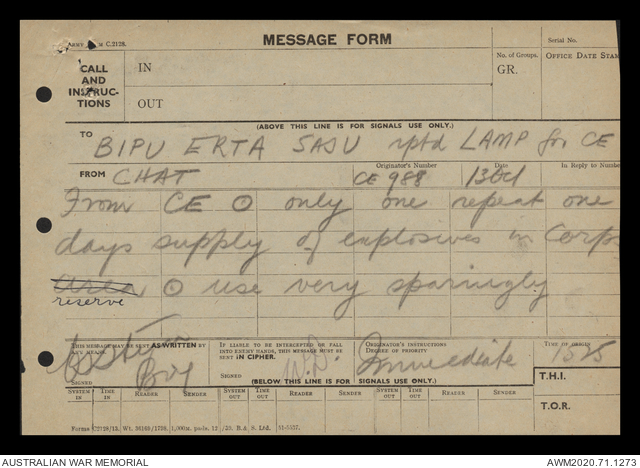 ARMY M C.2128.
MESSAGE FORM
Serial No.
CALL AND INSTRUC-TIONS
IN
No. of Groups.
GR.
Office Date Stam
OUT
(ABOVE THIS LINE IS FOR SIGNALS USE ONLY.)
TO BIPU ERTA SASU rptd LAMP for CE
FROM CHAT
Originator's Number
CE 988
Date
13 Oct
In Reply to Number
From CE O only one repeat one
days supply of explosives in Corps
area O use very sparingly
reserve
THIS MESSAGE MAY BE SENT AS WRITTEN BY ANY MEANS.
SIGNED
IF LIABLE TO BE INTERCEPTED OR FALL INTO ENEMY HANDS, THIS MESSAGE MUST BE SENT IN CIPHER.
SIGNED
ORIGINATOR'S INSTRUCTIONS
DEGREE OF PRIORITY
Immediate
TIME OF ORIGIN
1525
(BELOW THIS LINE IS FOR SIGNALS USE ONLY.)
T.H.I.
SYSTEM IN
TIME IN
READER
SENDER
SYSTEM OUT
TIME OUT
READER
SENDER
SYSTEM OUT
TIME OUT
READER
SENDER
T.O.R.
Forms C2128/13. Wt. 36169/1798. 1,000m. pads. 12 /39. B. & S. Ltd. 51-5557.
AUSTRALIAN WAR MEMORIAL
AWM2020.71.1273